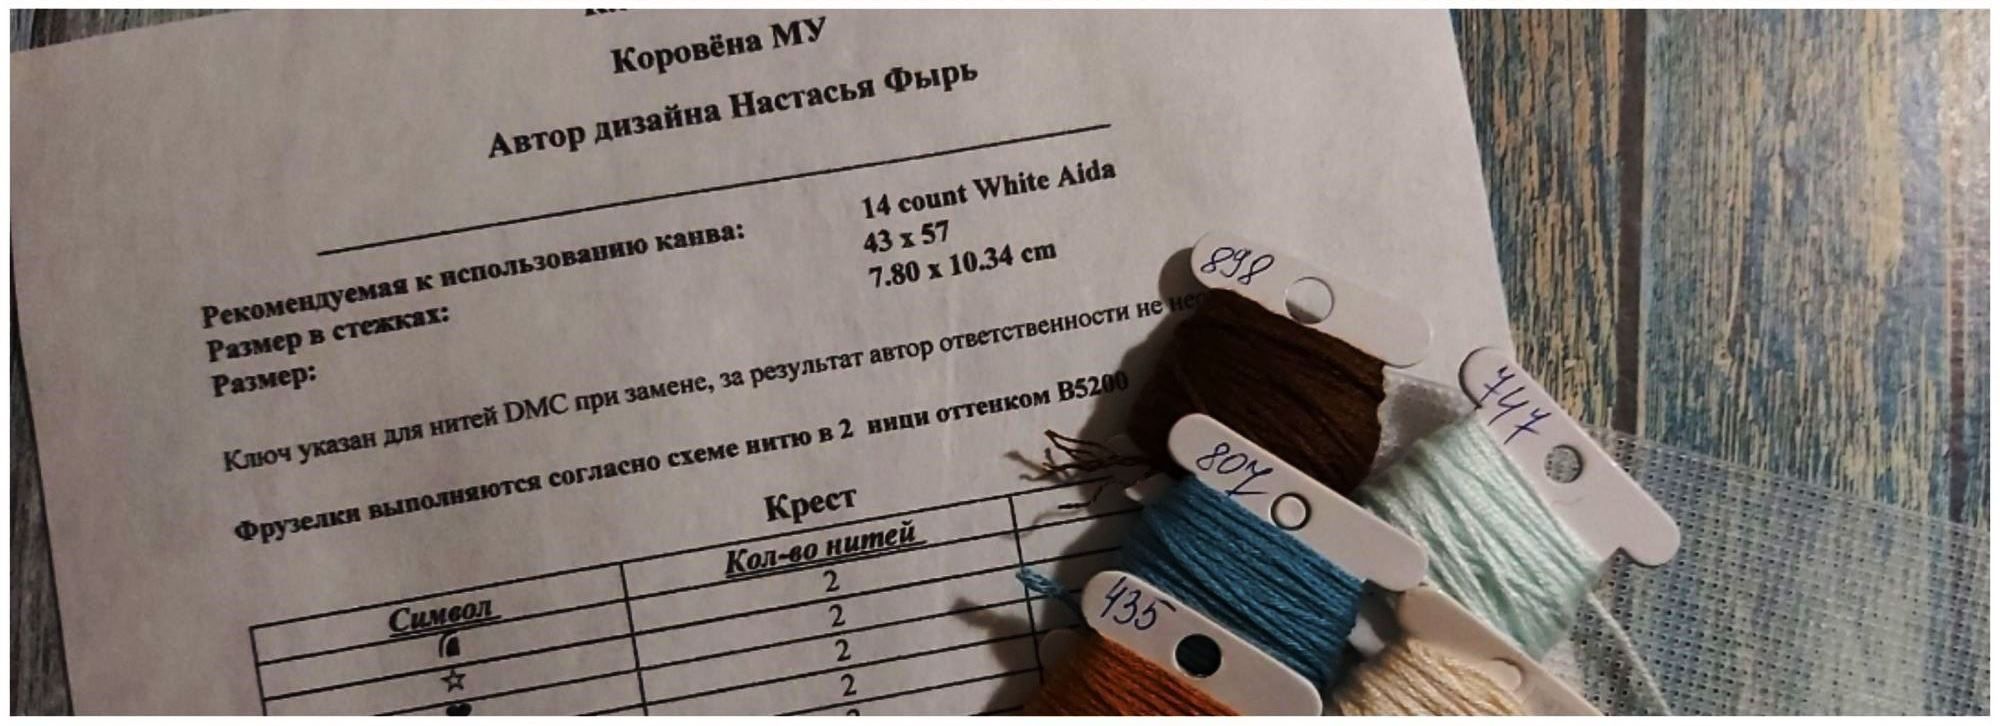 Коровёна МУ
Автор дизайна Настасья Фырь
Рекомендуемая к использованию канва: 14 count White Aida
Размер в стежках: 43 x 57
Размер: 7.80 x 10.34 cm
Ключ указан для нитей DMC при замене, за результат автор ответственности не
Фрузелки выполняются согласно схеме нитю в 2 ници оттенком B5200
Крест
Символ Кол-во нитей
2
2
2
2
898
747
807
435